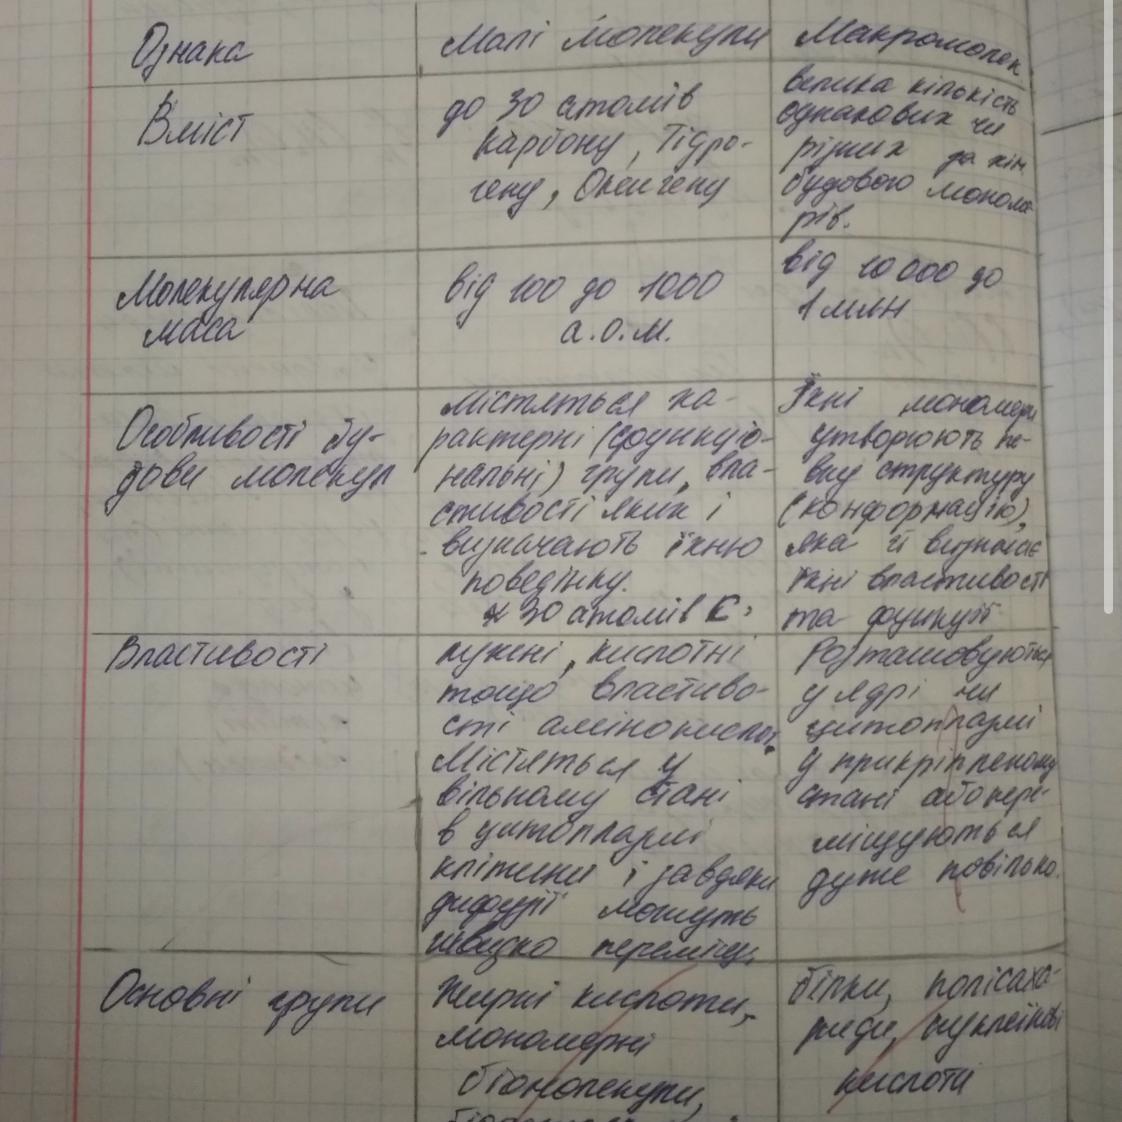 Ознака
Малі молекули
Макромолек
Вміст
до 30 атомів
Карбону, Гідро-
гену, Оксигену
велика кількість
однакових чи
різних за хім.
будовою мономе-
рів.
Молекулярна
маса
від 100 до 1000
а.о.м.
від 10 000 до
1 млн
Особливості бу-
дови молекул
Містяться ха-
рактерні (функціо-
нальні) групи, вла-
стивості яких і
визначають їхню
поведінку.
30 атомів С.
Їхні мономери
утворюють пе-
вну структуру
(конформацію),
яка й визначає
їхні властивості
та функції
Властивості
лужні, кислотні
тощо властиво-
сті амінокислот.
Містяться у
вільному стані
в цитоплазмі
клітини і завдяки
дифузії можуть
швидко переміщ.
Розташовуються
у ядрі чи
цитоплазмі
у прикріпленому
стані або пере-
міщуються
дуже повільно.
Основні групи
Жирні кислоти,
мономерні
біомолекули,
білки, полісаха-
риди, нуклеїнові
кислоти